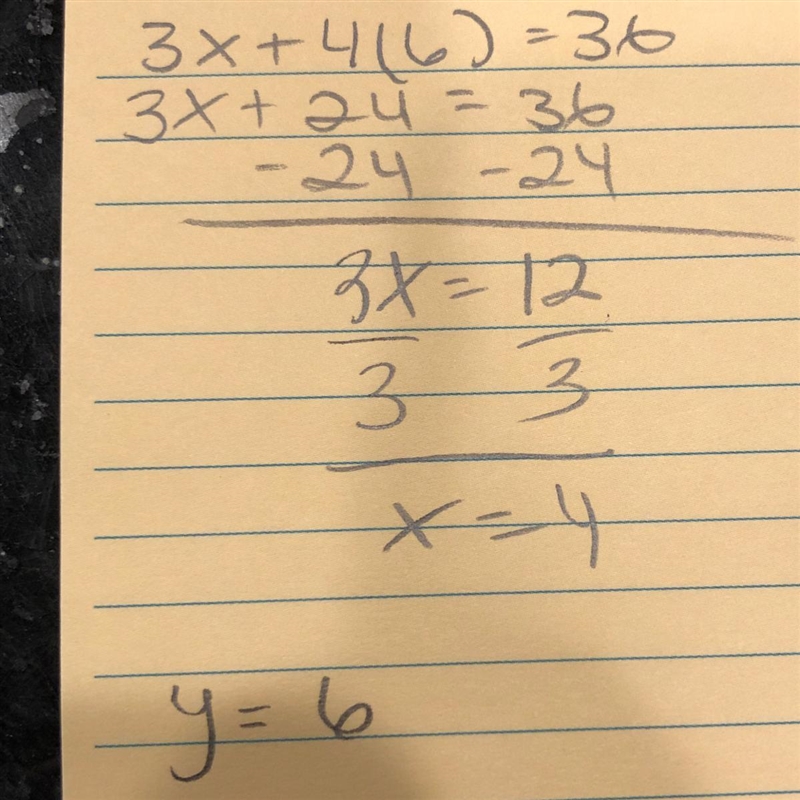 3x + 4(6) = 36
3x + 24 = 36
- 24 - 24
3x = 12
3 3
x = 4
y = 6